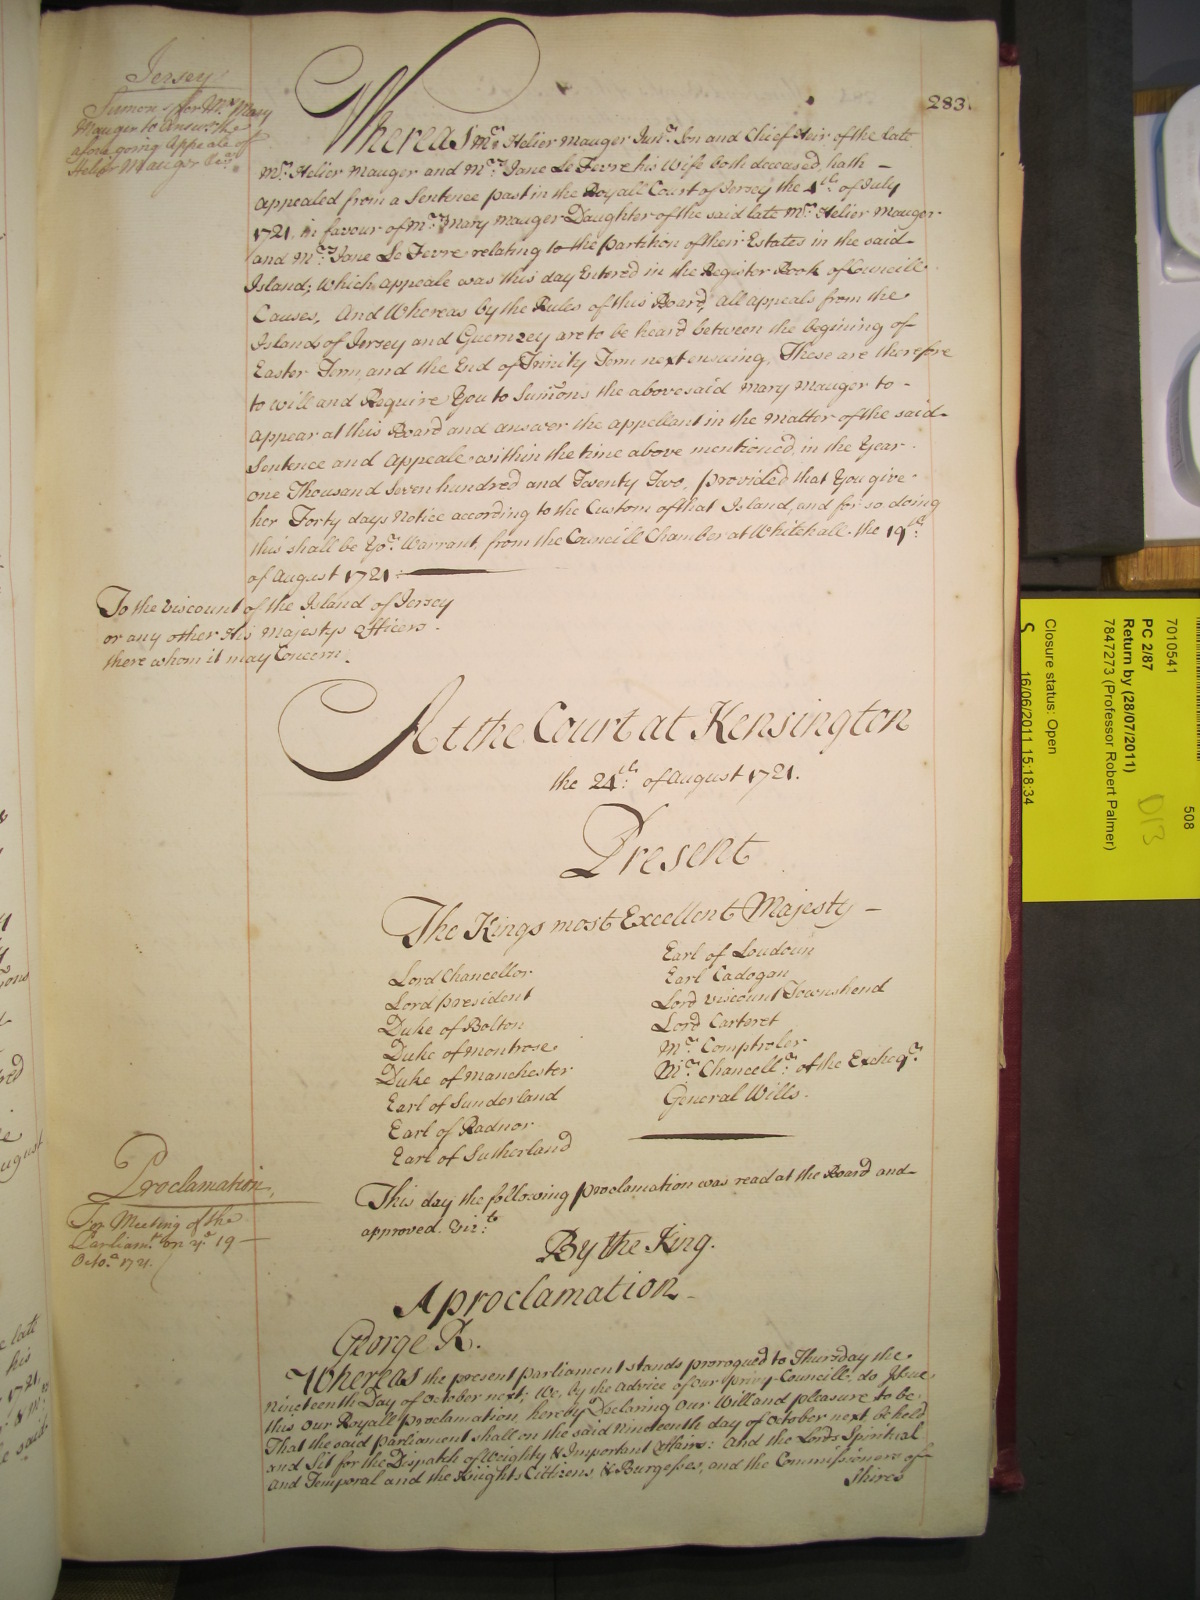 283.
Jersey
Sumons for Mrs. Mary
Mauger to Answr. the
afore going Appeale of
Helier Mauger
Whereas Mr. Helier Mauger Junr. Son and Chief Heir of the late
Mr. Helier Mauger and Mrs. Jane Le Fevre his Wife both deceased, hath -
appealed from a Sentence past in the Royall Court of Jersey the 4th. of July
1721. in favour of Mrs. Mary Mauger Daughter of the said late Mr. Helier Mauger
and Mrs. Jane Le Fevre relating to the Partition of their Estates in the said
Island; Which appeale was this day Entered in the Register Book of Councill
Causes, And Whereas by the Rules of this Board, all appeals from the
Islands of Jersey and Guernzey are to be heard between the begining of
Easter Term, and the End of Trinity Term next ensuing, These are therefore
to will and Require You to Sumons the abovesaid Mary Mauger to -
appear at this Board and answer the appellant in the Matter of the said
Sentence and Appeale within the time above mentioned, in the Year
one Thousand Seven hundred and Twenty Two, provided that You give
her Forty days Notice according to the Custom of that Island, and for so doing
this shall be Yor. Warrant, from the Councill Chamber at Whitehall the 19th.
of August 1721.
To the Viscount of the Island of Jersey
or any other His Majestys Officers
there whom it may Concern.
At the Court at Kensington
the 24th. of August 1721.
Present
The Kings most Excellent Majesty -
Lord Chancellor
Lord President
Duke of Bolton
Duke of Montrose
Duke of Manchester
Earl of Sunderland
Earl of Radnor
Earl of Sutherland
Earl of Loudoun
Earl Cadogan
Lord Viscount Townshend
Lord Carteret
Mr. Comptroler
Mr. Chancellr. of the Excheqr.
General Wills.
Proclamation
For Meeting of the
Parliamt. on ye. 19
Octor. 1721.
This day the following Proclamation was read at the Board and
approved. Vizt.
By the King.
A Proclamation
George R.
Whereas the present Parliament stands prorogued to Thursday the
nineteenth Day of October next; We, by the Advice of Our Privy Councill, do Issue
this Our Royall Proclamation, hereby Declaring Our Will and pleasure to be,
That the said Parliament shall on the said Nineteenth day of October next, be held
and Sit for the Dispatch of Weighty & Important Affairs: And the Lords Spiritual
and Temporal and the Knights Citizens, & Burgesses, and the Commissioners of
Shires
7010541
508
PC 2/87
Return by (28/07/2011)
7847273 (Professor Robert Palmer)
D13
Closure status: Open
S
16/06/2011 15:18:34